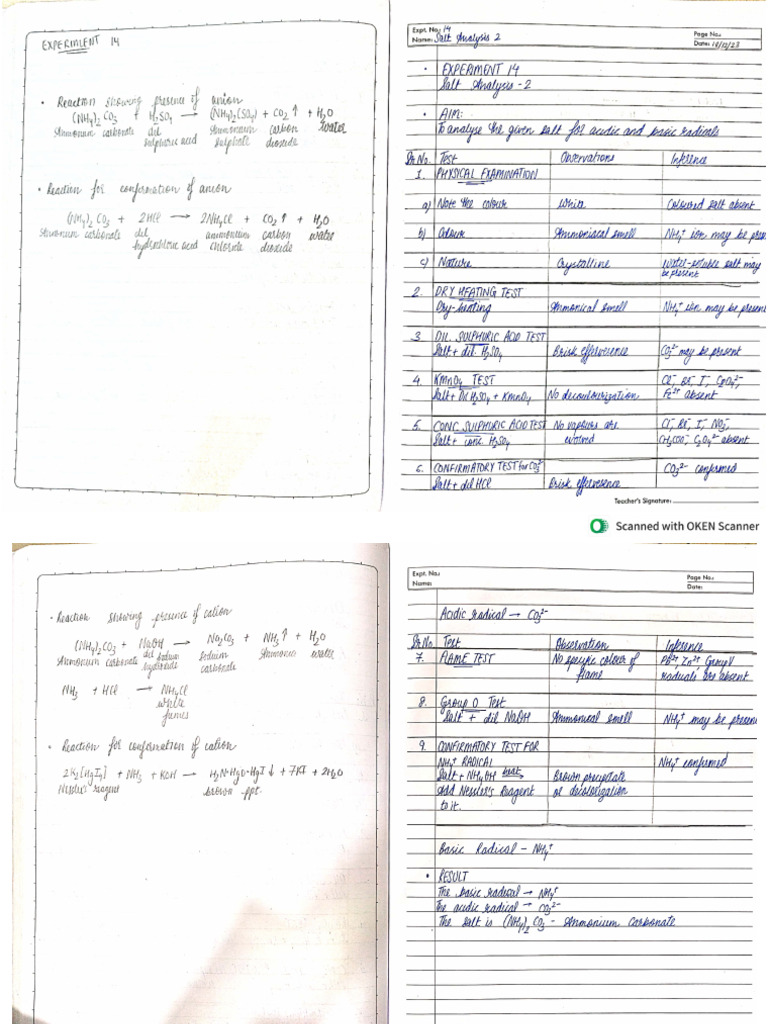 EXPERIMENT 14
• Reaction showing presence of anion
(NH4)2 CO3 + H2SO4 → (NH4)2(SO4) + CO2 ↑ + H2O
Ammonium carbonate dil sulphuric acid Ammonium sulphate carbon dioxide water
• Reaction for conformation of anion
(NH4)2 CO3 + 2HCl → 2NH4Cl + CO2 ↑ + H2O
Ammonium carbonate dil hydrochloric acid ammonium chloride carbon dioxide water
Expt. No.: 14
Name: Salt Analysis 2
Page No.:
Date: 18/12/23
• EXPERIMENT 14
Salt Analysis - 2
• AIM:
To analyse the given salt for acidic and basic radicals
Sr.No. Test Observations Inference
1. PHYSICAL EXAMINATION
a) Note the colour White Coloured salt absent
b) Odour Ammoniacal smell NH4+ ion may be pres
c) Nature Crystalline Water-soluble salt may
be present
2. DRY HEATING TEST
Dry-heating Ammonical smell NH4+ ion may be presen
3. DIL. SULPHURIC ACID TEST
Salt + dil. H2SO4 Brisk effervesence CO3 2- may be present
4. KMnO4 TEST Cl-, Br-, I-, C2O4 2-
Salt + Dil H2SO4 + KmnO4 No decoulourization Fe2+ absent
5. CONC. SULPHURIC ACID TEST No vapours are Cl-, Br-, I-, NO3-
Salt + conc. H2SO4 evolved CH3COO-, C2O4 2- absent
6. CONFIRMATORY TEST for CO3 2- CO3 2- confirmed
Salt + dil HCl Brisk effervesence
Teacher's Signature:
Scanned with OKEN Scanner
• Reaction showing presence of cation
(NH4)2CO3 + NaOH → Na2CO3 + NH3 ↑ + H2O
Ammonium carbonate dil sodium hydroxide sodium carbonate Ammonia water
NH3 + HCl → NH4Cl
white
fumes
• Reaction for conformation of cation
2K2[HgI4] + NH3 + KOH → H2N·HgO·HgI ↓ + 7KI + 2H2O
Nessler's reagent brown ppt.
Expt. No.:
Name:
Page No.:
Date:
Acidic radical → CO3 2-
Sr.No. Test Observation Inference
7. FLAME TEST No specific colour of Pb2+, Zn2+, Group V
flame radicals are absent
8. Group 0 Test
Salt + dil NaOH Ammonical smell NH4+ may be presen
9. CONFIRMATORY TEST FOR
NH4+ RADICAL NH4+ confirmed
Salt + NH4OH heat Brown precipitate
Add Nessler's Reagent or decolorization
to it.
Basic Radical - NH4+
• RESULT
The basic radical → NH4+
The acidic radical → CO3 2-
The salt is (NH4)2 CO3 - Ammonium Carbonate